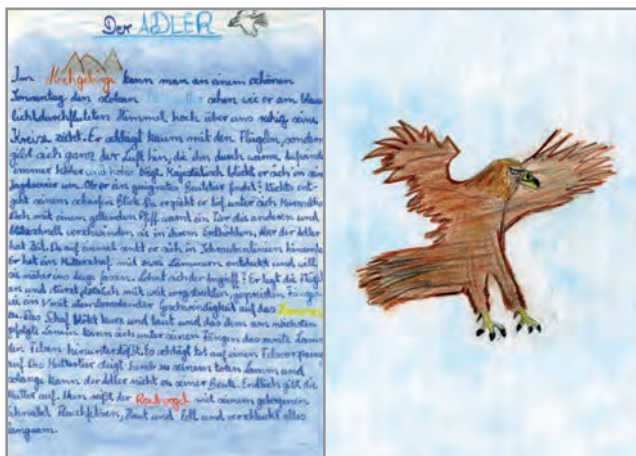 Der ADLER
Im Hochgebirge kann man an einem schönen
Sonnentag den stolzen sehen wie er am blau
lichtdurchfluteten Himmel hoch über uns ruhig seine
Kreise zieht. Er schlägt kaum mit den Flügeln, sondern
gibt sich ganz der Luft hin, die ihn durch warme
immer höher und höher trägt. Majestätisch blickt er sich in sein
Jagdrevier um. Ob er ein geeignetes Beutetier findet? Nichts ent-
geht seinem scharfen Blick. Da er tief unter sich
Doch mit einem gellenden Pfiff warnt ein Tier die anderen und
blitzschnell verschwinden sie in ihrem Aber der Adler
hat Zeit. Da auf einmal senkt er sich in Schraubenlinien hinunter
Er hat ein Mutterschaf mit zwei Lämmern entdeckt und will
sie näher ins Auge fassen. Lohnt sich der Angriff? Er legt die Flügel
an und stürzt plötzlich mit weit vorgestreckten, gespreizten Fängen
mit Geschwindigkeit auf das
zu. Das Schaf blökt kurz und laut und das dem am nächsten
Lamm kann sich unter seinen Fängen das zweite Lamm
den Felsen hinunterstößt. Es schlägt tot auf einen Felsvorsprung
auf. Das Muttertier steigt zu seinem toten Lamm und
solange kann der Adler nicht zu seiner Beute. Endlich gibt die
Mutter auf. Nun reißt der Raubvogel mit seinem gebogenen
Schnabel Haut und Fell und verschluckt alles
langsam.